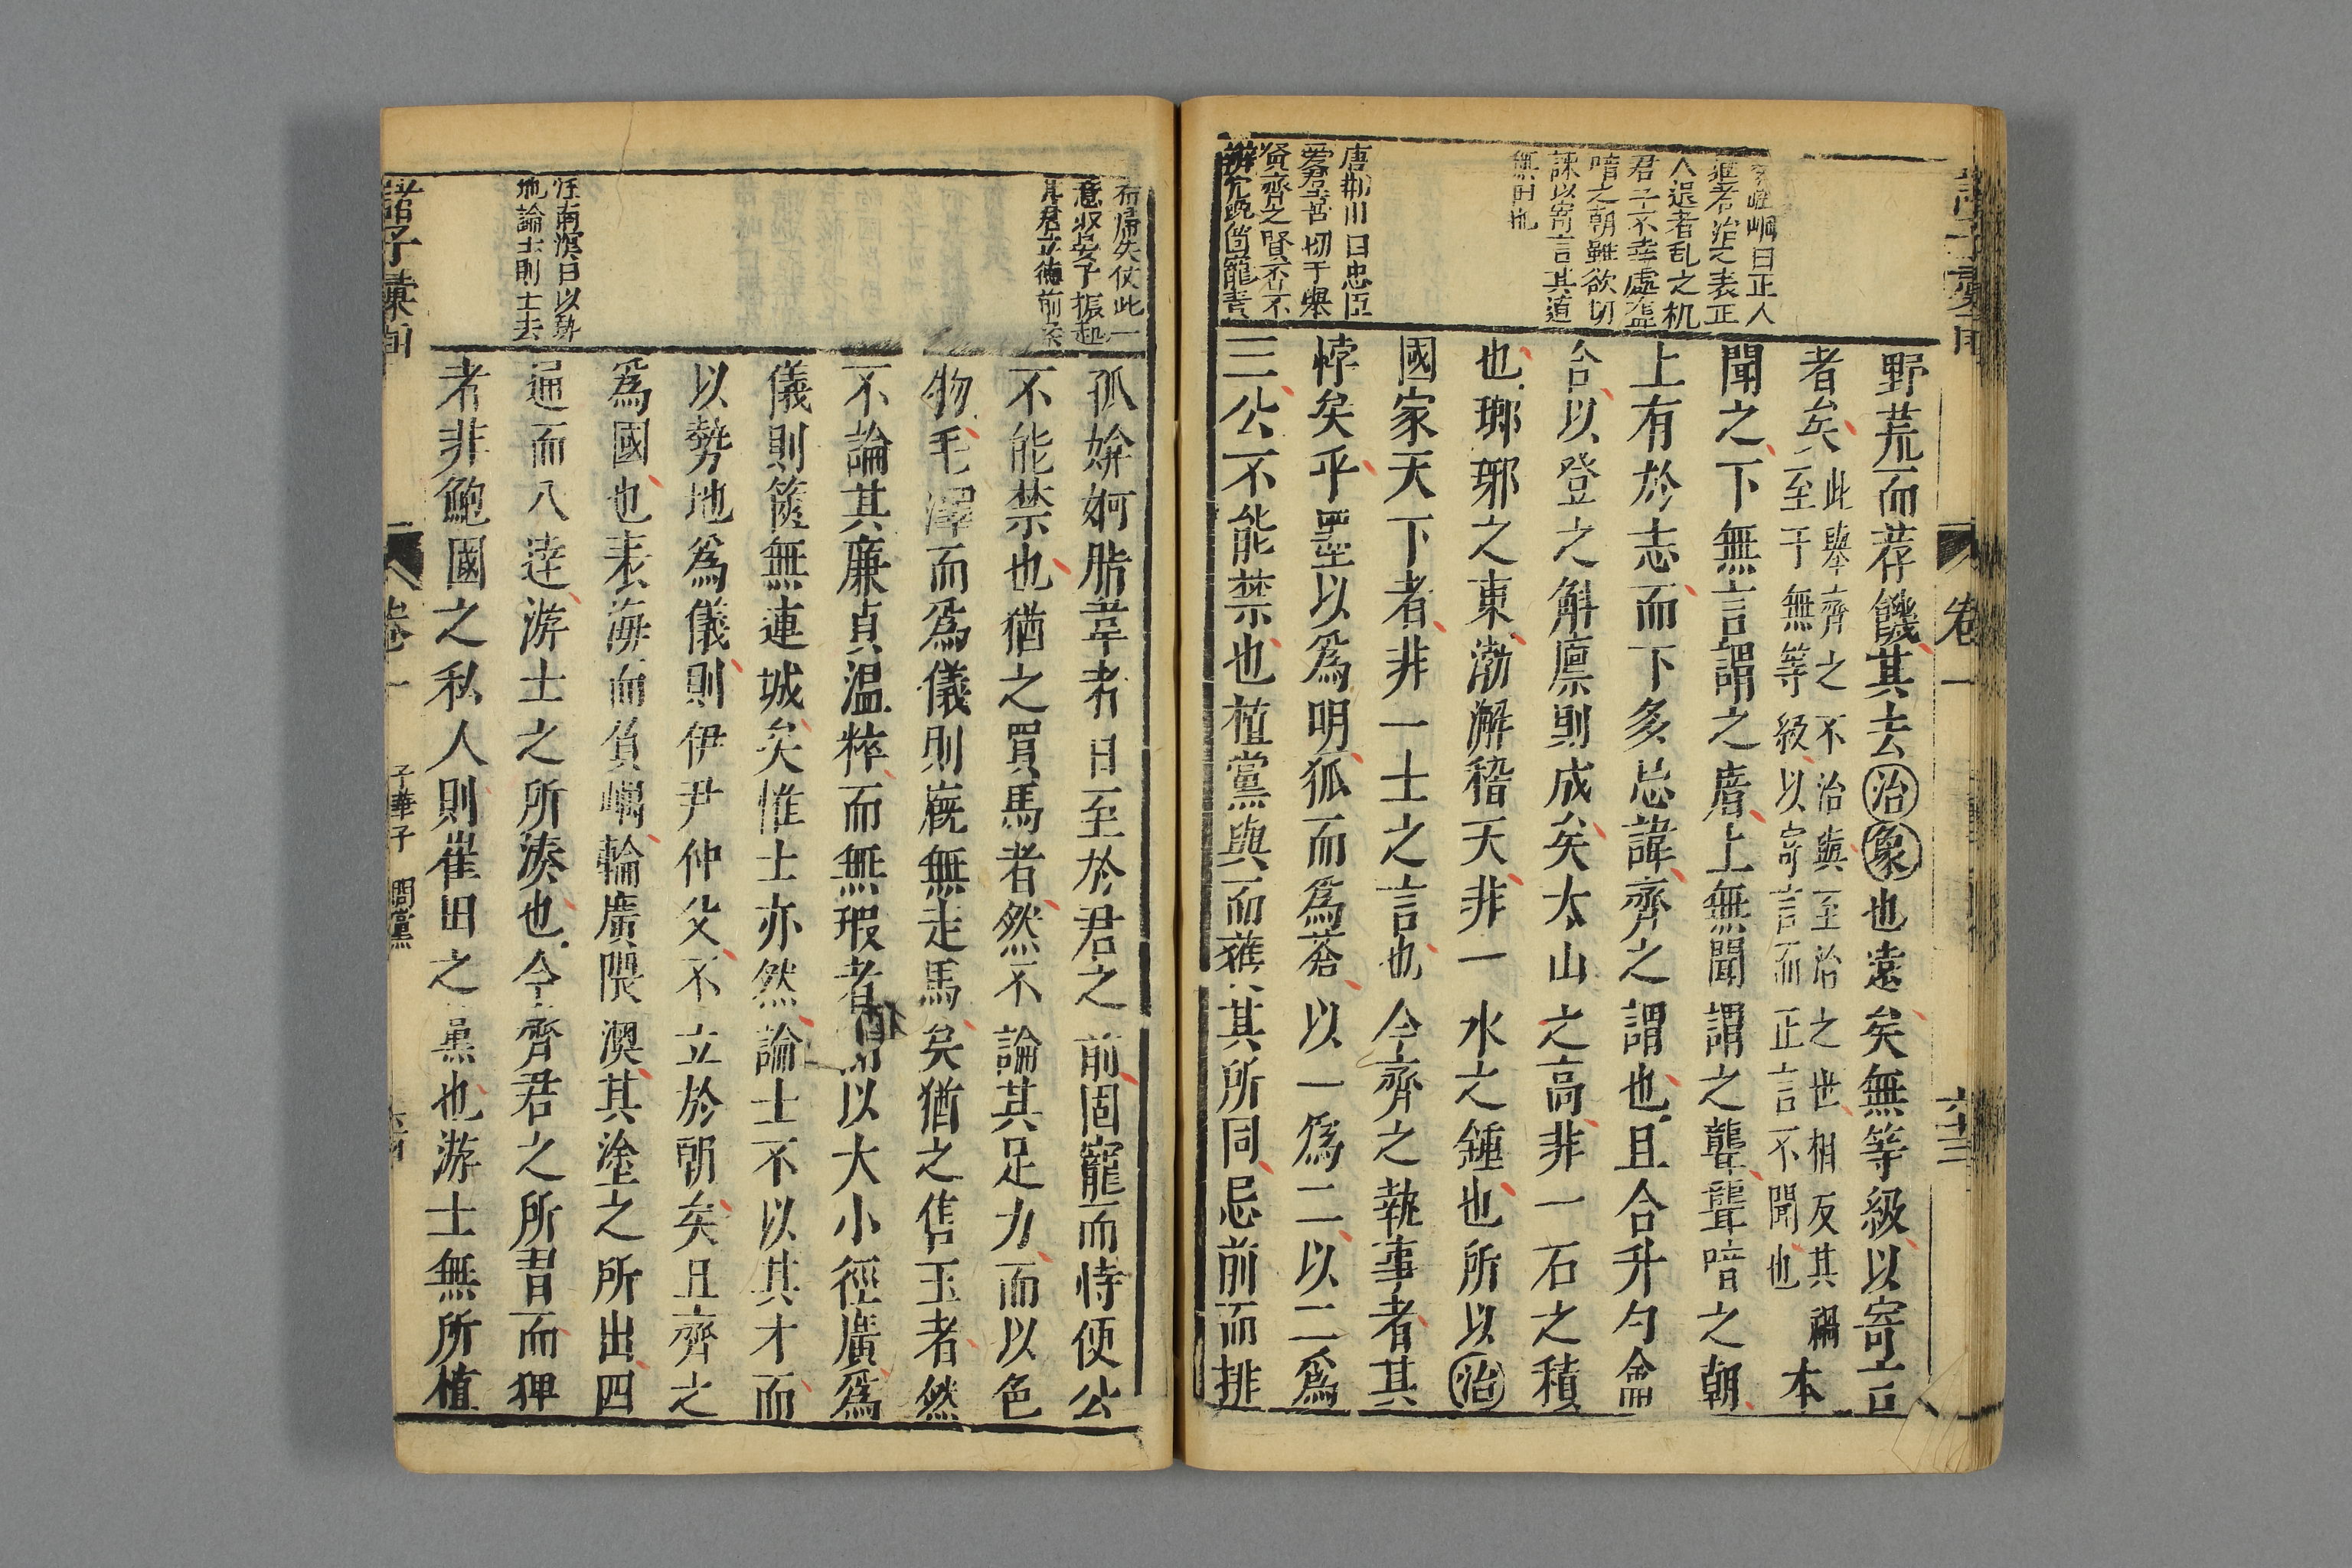 李崆峒曰正人
進者治之表正
人退者乱之机
君子不幸處聾
喑之朝雖欲切
諫以寄言其道
無由也
唐荆川曰忠臣
爱君苦切于舉
贤齊之賢否不
辨冗既茍寵者
野荒而荐饑其去治象也遠矣無等級以寄言
者矣此舉齊之不治與至治之世相反其禍
至于無等級以寄言而正言不聞也本
聞之下無言謂之瘖上無聞謂之聾聾瘖之朝
上有於志而下多忌諱齊之謂也且合升勺龠
合以登之斛廪則成矣太山之高非一石之積
也瑯琊之東渤澥稽天非一水之鍾也所以治
國家天下者非一士之言也今齊之執事者其
悖矣乎墨以爲明狐而爲蒼以一爲二以二爲
三公不能禁也植黨與而獲其所同忌前而排
諸子彙函
卷一
六十三
布帰失仗此一
意収晏子振起
其君立德前来
汪南溟曰以執
地論士則士去
孤媕婀脂韋者日至於君之前固寵而恃便公
不能禁也猶之買馬者然不論其足力而以色
物毛澤而爲儀則廐無走馬矣猶之售玉者然
不論其廉貞温粹而無瑕者而以大小徑廣爲
儀則篋無連城矣惟士亦然論士不以其才而
以勢地爲儀則伊尹仲父不立於朝矣且齊之
爲國也表海而負嵎輪廣隈澳其塗之所出四
通而八達游士之所湊也今齊君之所習而狎
者非鮑國之私人則崔田之黨也游士無所植
諸子彙函
卷一
子華子 問黨